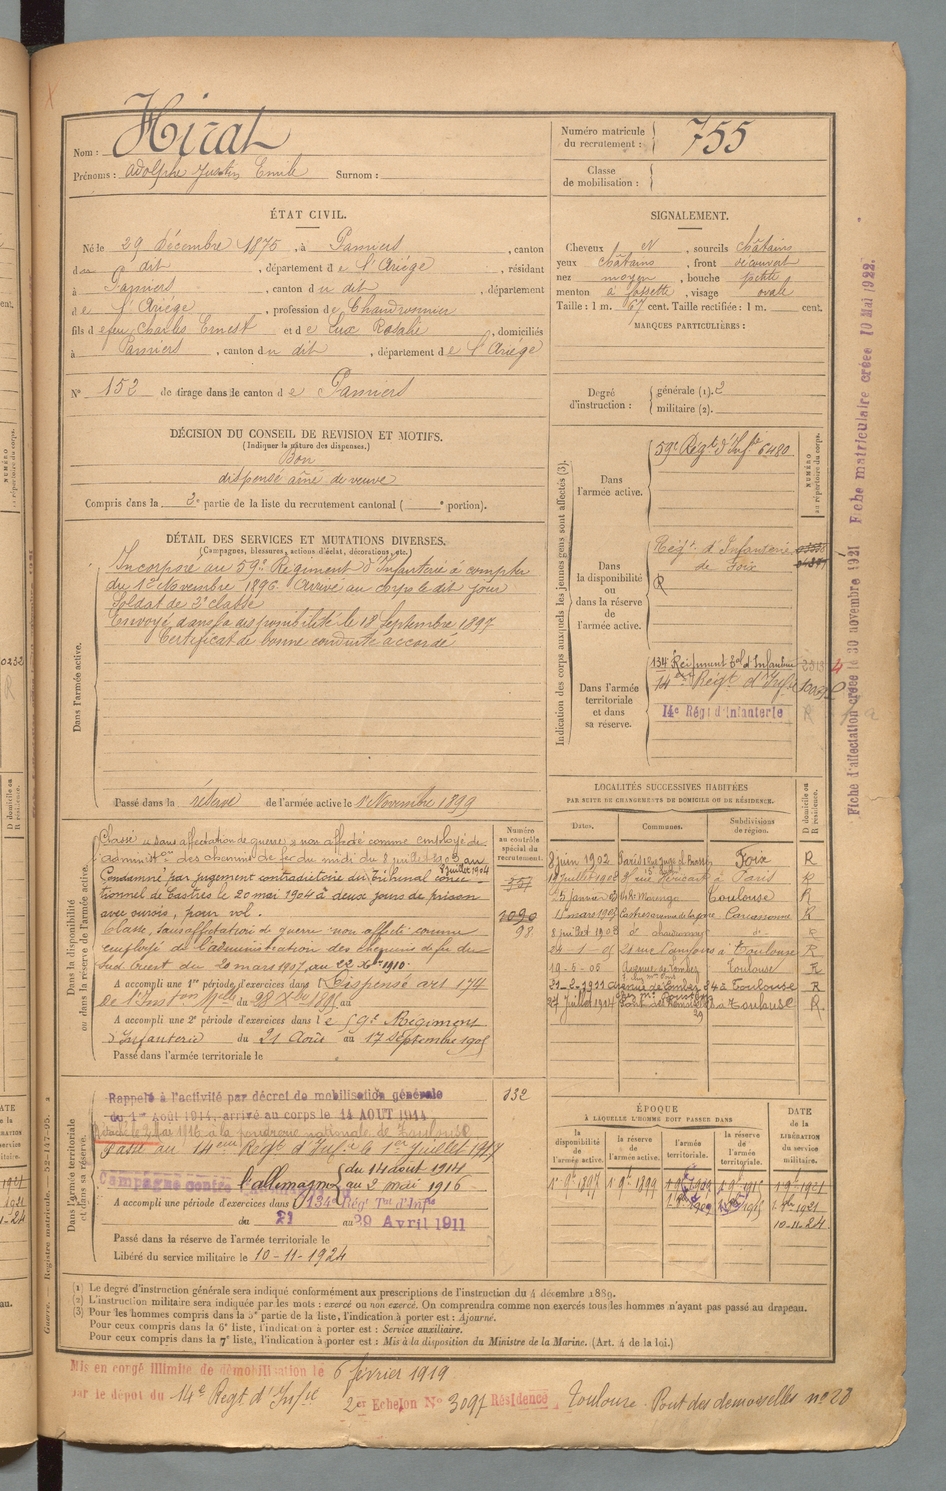 Nom : Hirat
Prénoms : Adolphe Justin Emile Surnom :
Numéro matricule du recrutement : 755
Classe de mobilisation :
ÉTAT CIVIL.
Né le 29 décembre 1875, à Pamiers, canton
du dit, département de l'Ariège, résidant
à Pamiers, canton du dit, département
de l'Ariège, profession de Chaudronnier
fils de feu Charles Ernest et de Lux Rosalie, domiciliés
à Pamiers, canton du dit, département de l'Ariège
N° 152 de tirage dans le canton de Pamiers
SIGNALEMENT.
Cheveux N, sourcils châtains
yeux châtains, front découvert
nez moyen, bouche petite
menton à fossette, visage ovale
Taille : 1 m. 67 cent. Taille rectifiée : 1 m. cent.
MARQUES PARTICULIÈRES :
Degré d'instruction : générale (1). 2
militaire (2).
DÉCISION DU CONSEIL DE REVISION ET MOTIFS.
(Indiquer la nature des dispenses.)
Bon
dispensé aîné de veuve
Compris dans la 2e partie de la liste du recrutement cantonal ( e portion).
DÉTAIL DES SERVICES ET MUTATIONS DIVERSES.
(Campagnes, blessures, actions d'éclat, décorations, etc.)
Dans l'armée active.
Incorporé au 59e Régiment d'Infanterie à compter
du 12 Novembre 1896. Arrivé au corps le dit jour
Soldat de 2e classe
Envoyé dans la disponibilité le 18 Septembre 1897
Certificat de bonne conduite accordé
Passé dans la réserve de l'armée active le 1er Novembre 1899
Indication des corps auxquels les jeunes gens sont affectés (3).
NUMÉRO au répertoire du corps.
Dans l'armée active.
59e Régt d'Infie 6480
Dans la disponibilité ou dans la réserve de l'armée active.
Régt d'Infanterie
de Foix
R
Dans l'armée territoriale et dans sa réserve.
134 Régiment Eal d'Infanterie
14eme Régt d'Infie
14e Régt d'Infanterie
Fiche d'affectation créée le 30 novembre 1921 Fiche matriculaire créée 10 Mai 1922.
Dans la disponibilité ou dans la réserve de l'armée active.
Numéro au contrôle spécial du recrutement.
Classé "sans affectation de guerre" non affecté comme employé de
administon des chemins de fer du midi du 8 juillet 1903 au
8 juillet 1904
Condamné par jugement contradictoire du Tribunal correc-
tionnel de Castres le 20 mai 1904 à deux jours de prison
avec sursis, pour vol.
1090
98
Classé, sans affectation de guerre non affecté comme
employé de l'administration des chemins de fer du
Sud Ouest du 20 mars 1907 au 22 Xbre 1910.
A accompli une 1re période d'exercices dans l Dispensé art 174
de l'Inston Melle du 28 Xbre 1895 au
A accompli une 2e période d'exercices dans le 59e Régiment
d'Infanterie du 21 Août au 17 Septembre 1905
Passé dans l'armée territoriale le
LOCALITÉS SUCCESSIVES HABITÉES
PAR SUITE DE CHANGEMENTS DE DOMICILE OU DE RÉSIDENCE.
Dates. Communes. Subdivisions de région. D domicile ou R résidence.
8 juin 1902 Paris Foix R
Paris R
Toulouse R
Carcassonne R
24-1-05 Toulouse R
19-5-05 Avenue de Lombez Toulouse R
21-2-1911 Avenue de Lombez 84 à Toulouse R
27 Juillet 1914 Toulouse R
Dans l'armée territoriale et dans sa réserve.
332
Rappelé à l'activité par décret de mobilisation générale
du 1er Août 1914, arrivé au corps le 14 AOUT 1914
Passé le 2 Mai 1916 à la poudrerie nationale de Toulouse
Passé au 14eme Régt d'Infie le 1er juillet 1917
Campagne contre l'allemagne du 14 août 1914
au 2 mai 1916
A accompli une période d'exercices dans 134e Rég Tal d'Infie
du 21 au 29 Avril 1911
Passé dans la réserve de l'armée territoriale le
Libéré du service militaire le 10-11-1924
ÉPOQUE
À LAQUELLE L'HOMME DOIT PASSER DANS
la disponibilité de l'armée active. la réserve de l'armée active. l'armée territoriale. la réserve de l'armée territoriale. DATE de la LIBÉRATION du service militaire.
1er 9e 1897 1er 9e 1899
10-11-24
(1) Le degré d'instruction générale sera indiqué conformément aux prescriptions de l'instruction du 4 décembre 1889.
(2) L'instruction militaire sera indiquée par les mots : exercé ou non exercé. On comprendra comme non exercés tous les hommes n'ayant pas passé au drapeau.
(3) Pour les hommes compris dans la 5e partie de la liste, l'indication à porter est : Ajourné.
Pour ceux compris dans la 6e liste, l'indication à porter est : Service auxiliaire.
Pour ceux compris dans la 7e liste, l'indication à porter est : Mis à la disposition du Ministre de la Marine. (Art. 4 de la loi.)
Guerre. — Registre matricule. — 52-147-95.
Mis en congé illimité de démobilisation le 6 février 1919
par le dépôt du 14e Régt d'Infie 2er Echelon N° 3097 Résidence, Toulouse. Pont des demoiselles no 28